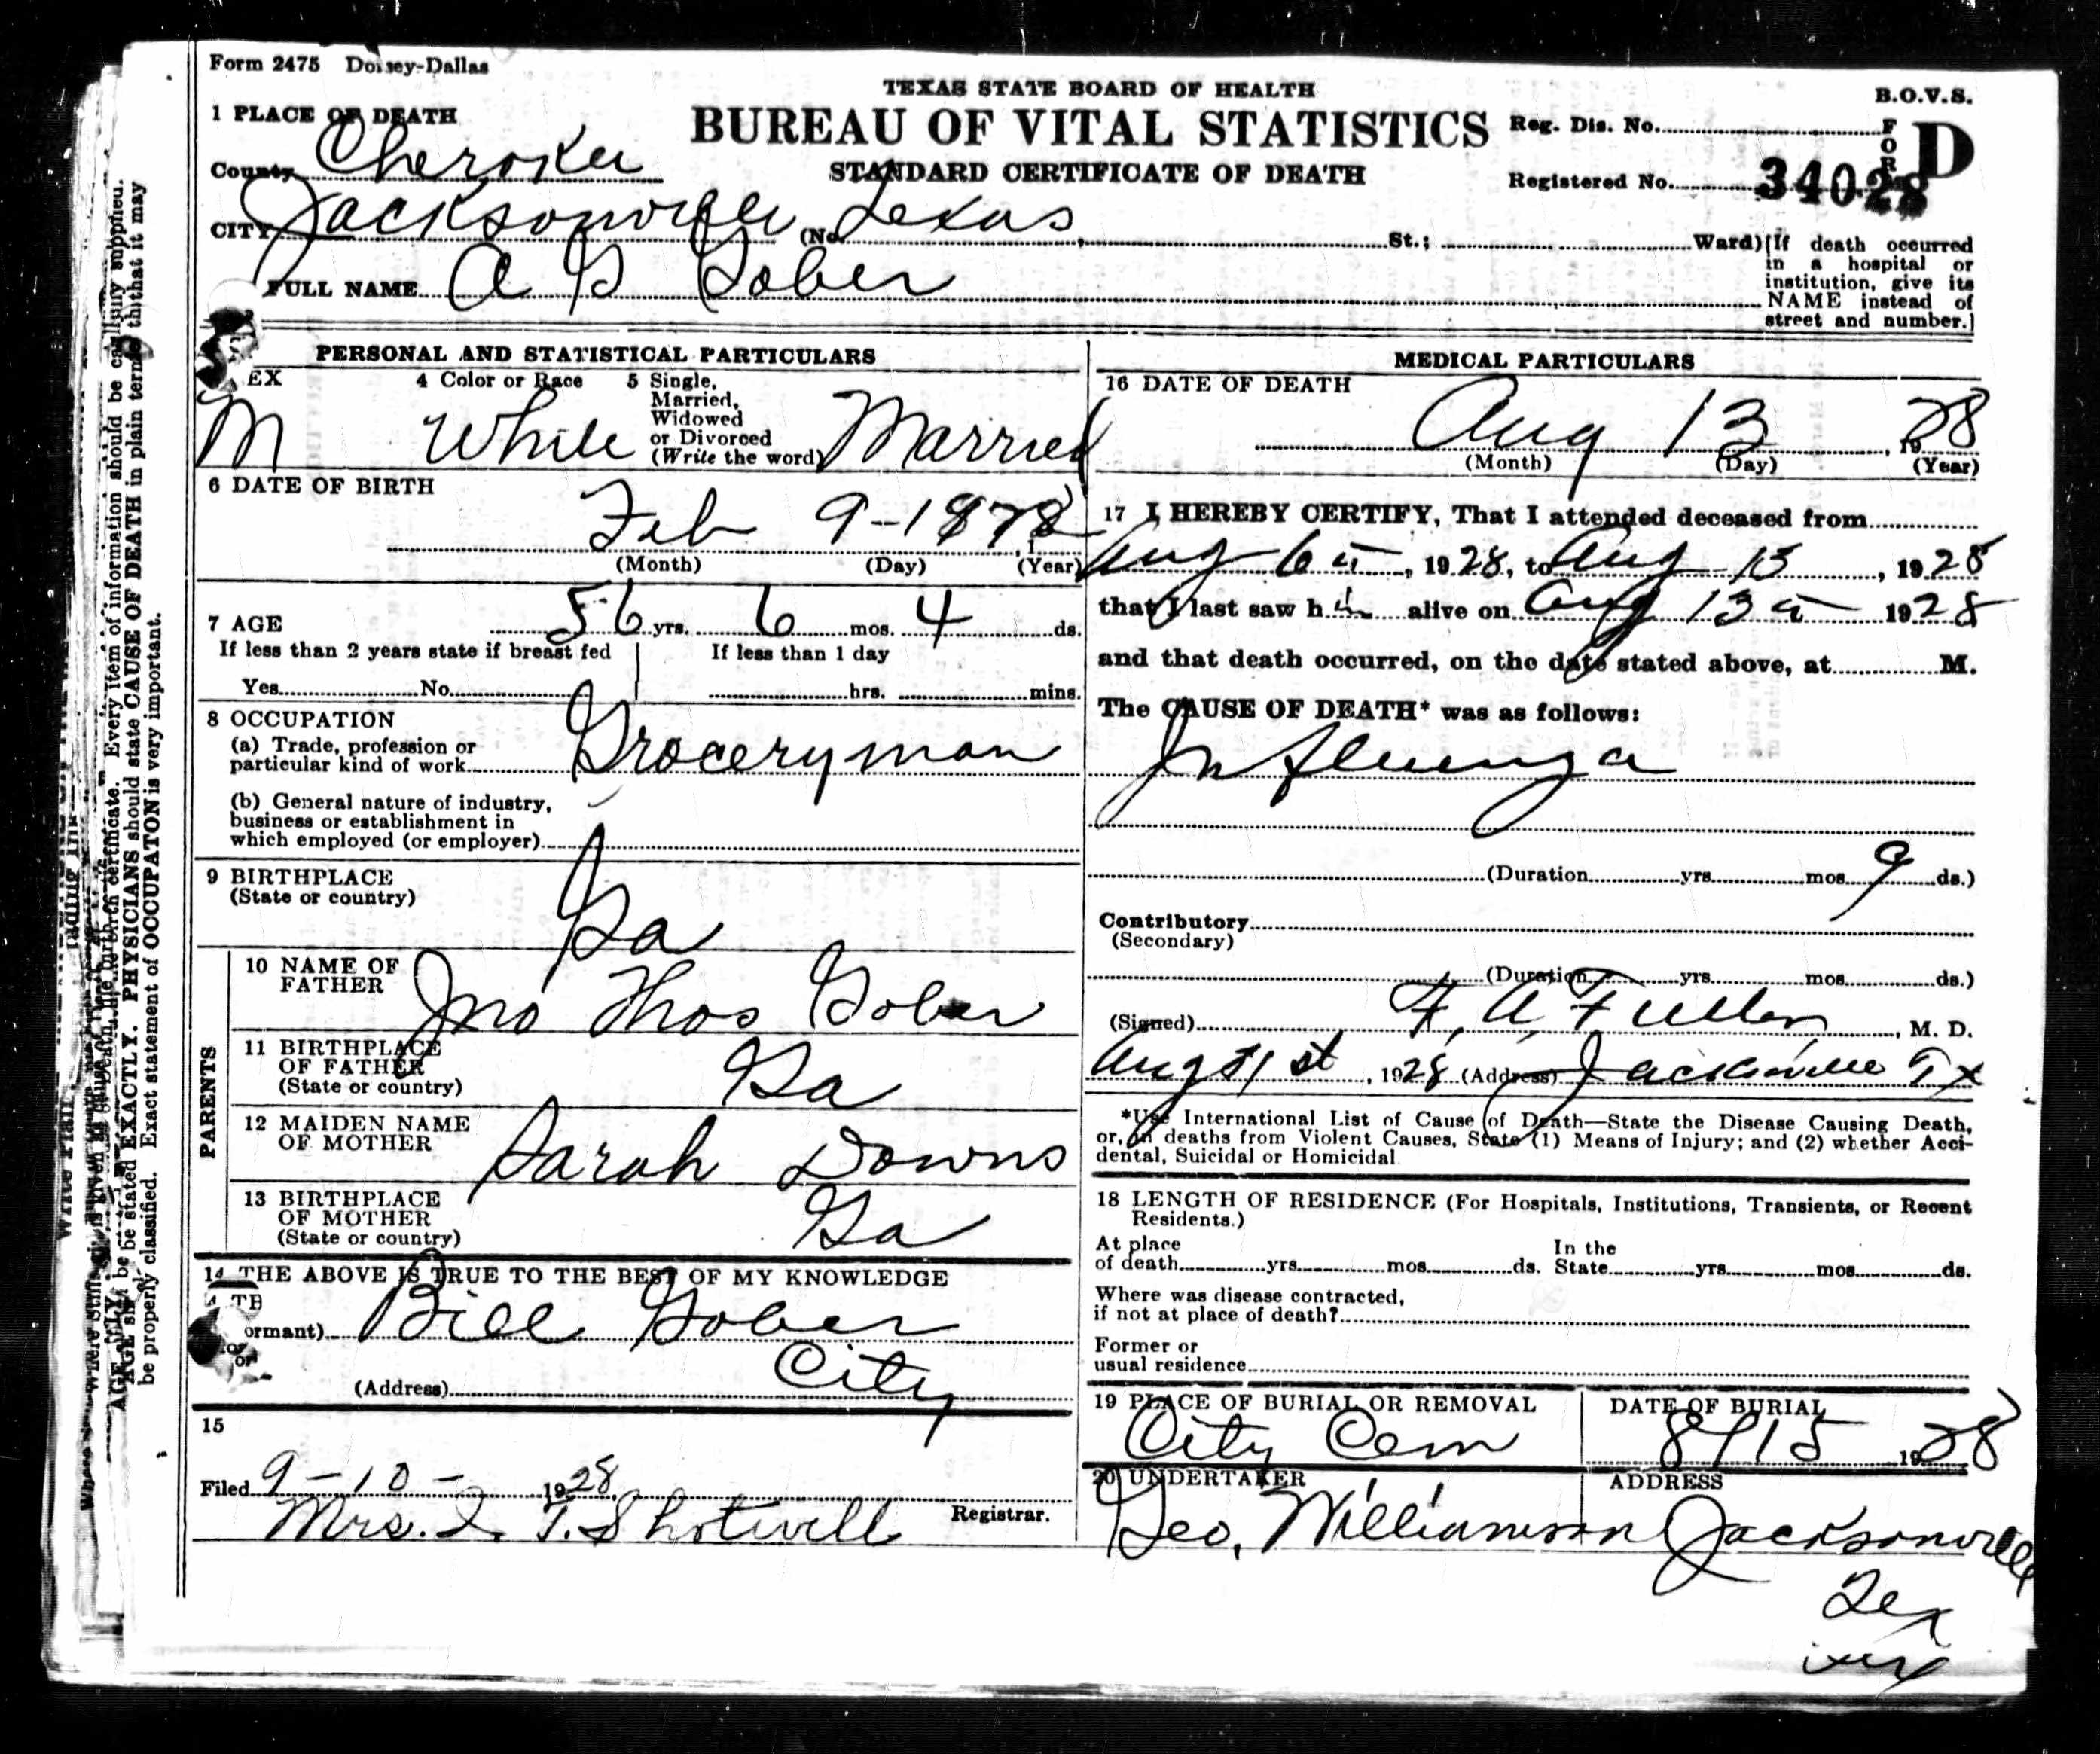 Form 2475 Dorsey-Dallas
TEXAS STATE BOARD OF HEALTH
B.O.V.S.
BUREAU OF VITAL STATISTICS
STANDARD CERTIFICATE OF DEATH
FORM D
Reg. Dis. No.
Registered No. 34028
1 PLACE OF DEATH
County Cherokee
CITY Jacksonville (No. Texas St.; Ward)
[If death occurred
in a hospital or
institution, give its
NAME instead of
street and number.]
FULL NAME A G Gober
PERSONAL AND STATISTICAL PARTICULARS
EX M
4 Color or Race White
5 Single,
Married,
Widowed
or Divorced
(Write the word) Married
6 DATE OF BIRTH
Feb 9-1872
(Month) (Day) (Year)
7 AGE 56 yrs. 6 mos. 4 ds.
If less than 2 years state if breast fed
If less than 1 day
Yes No hrs. mins.
8 OCCUPATION
(a) Trade, profession or
particular kind of work Groceryman
(b) General nature of industry,
business or establishment in
which employed (or employer)
9 BIRTHPLACE
(State or country) Ga
PARENTS
10 NAME OF
FATHER Jno Thos Gober
11 BIRTHPLACE
OF FATHER
(State or country) Ga
12 MAIDEN NAME
OF MOTHER Sarah Downs
13 BIRTHPLACE
OF MOTHER
(State or country) Ga
14 THE ABOVE IS TRUE TO THE BEST OF MY KNOWLEDGE
ormant) Bill Gober
(Address) City
15
Filed 9-10- 1928
Mrs. T. Shotwell Registrar.
MEDICAL PARTICULARS
16 DATE OF DEATH
Aug 13, 1928
(Month) (Day) (Year)
17 I HEREBY CERTIFY, That I attended deceased from
Aug 6, 1928, to Aug 13, 1928
that I last saw h alive on Aug 13 1928
and that death occurred, on the date stated above, at M.
The CAUSE OF DEATH* was as follows:
Influenza
(Duration yrs. mos. 9 ds.)
Contributory
(Secondary)
(Duration yrs. mos. ds.)
(Signed) F. A. Fuller, M. D.
Aug 1928 (Address) Jacksonville Tx
*Use International List of Cause of Death—State the Disease Causing Death,
or, in deaths from Violent Causes, State (1) Means of Injury; and (2) whether Acci-
dental, Suicidal or Homicidal
18 LENGTH OF RESIDENCE (For Hospitals, Institutions, Transients, or Recent
Residents.)
At place
of death yrs. mos. ds.
In the
State yrs. mos. ds.
Where was disease contracted,
if not at place of death?
Former or
usual residence
19 PLACE OF BURIAL OR REMOVAL
City Cem
DATE OF BURIAL
8/15 1928
20 UNDERTAKER
Geo. Williamson
ADDRESS
Jacksonville
Tex
AGE should be stated EXACTLY. PHYSICIANS should state CAUSE OF DEATH in plain terms that it may
be properly classified. Exact statement of OCCUPATON is very important.